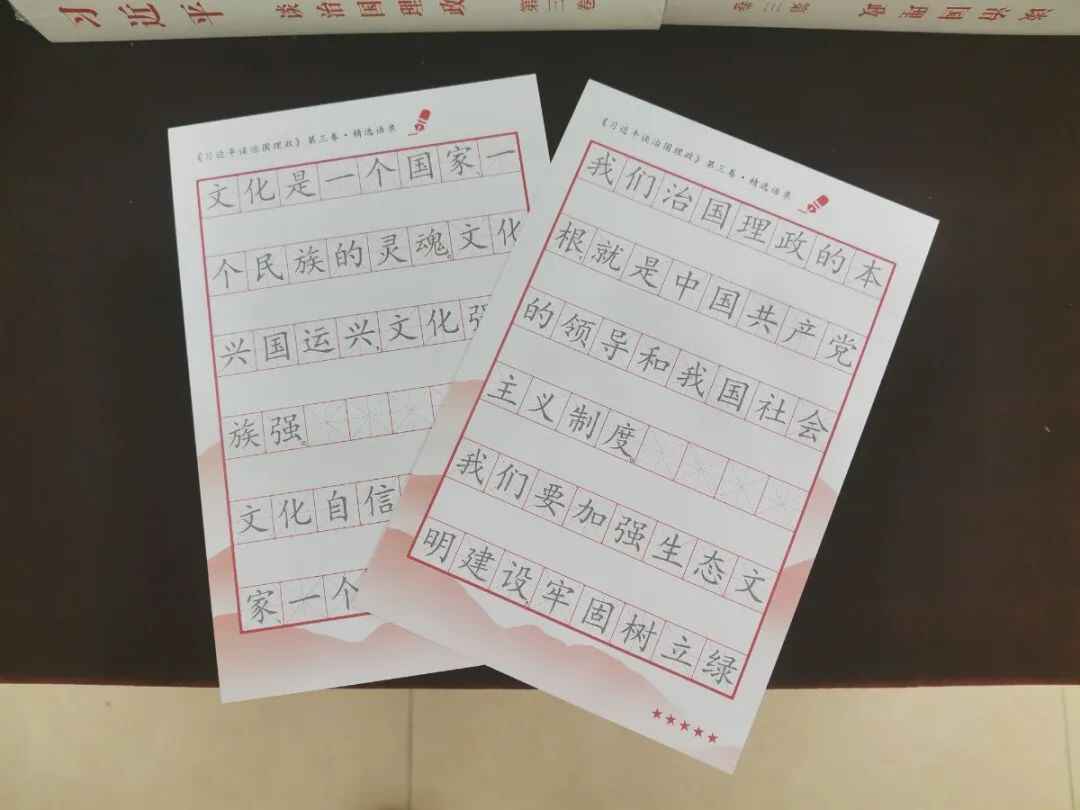 习近平 谈治国理政 第三卷
谈治国理政 第三卷
《习近平谈治国理政》第三卷·精选语录
文化是一个国家、一
个民族的灵魂。文化
兴国运兴，文化强
族强。
文化自信
家、一个
《习近平谈治国理政》第三卷·精选语录
我们治国理政的本
根，就是中国共产党
的领导和我国社会
主义制度。
我们要加强生态文
明建设，牢固树立绿